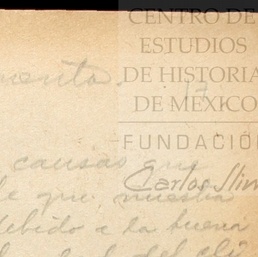 CENTRO DE
ESTUDIOS
DE HISTORIA
DE MÉXICO
FUNDACIÓN
Carlos Slim
causas que
de que, nuestra
debido a la buena